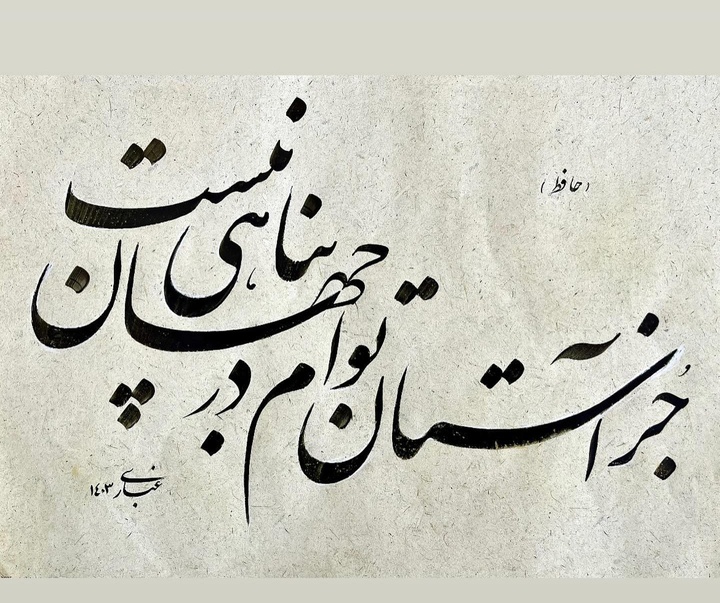 (حافظ)
جُز آستان توام در جهان پناهی نیست
غباری ۱۴۰۳